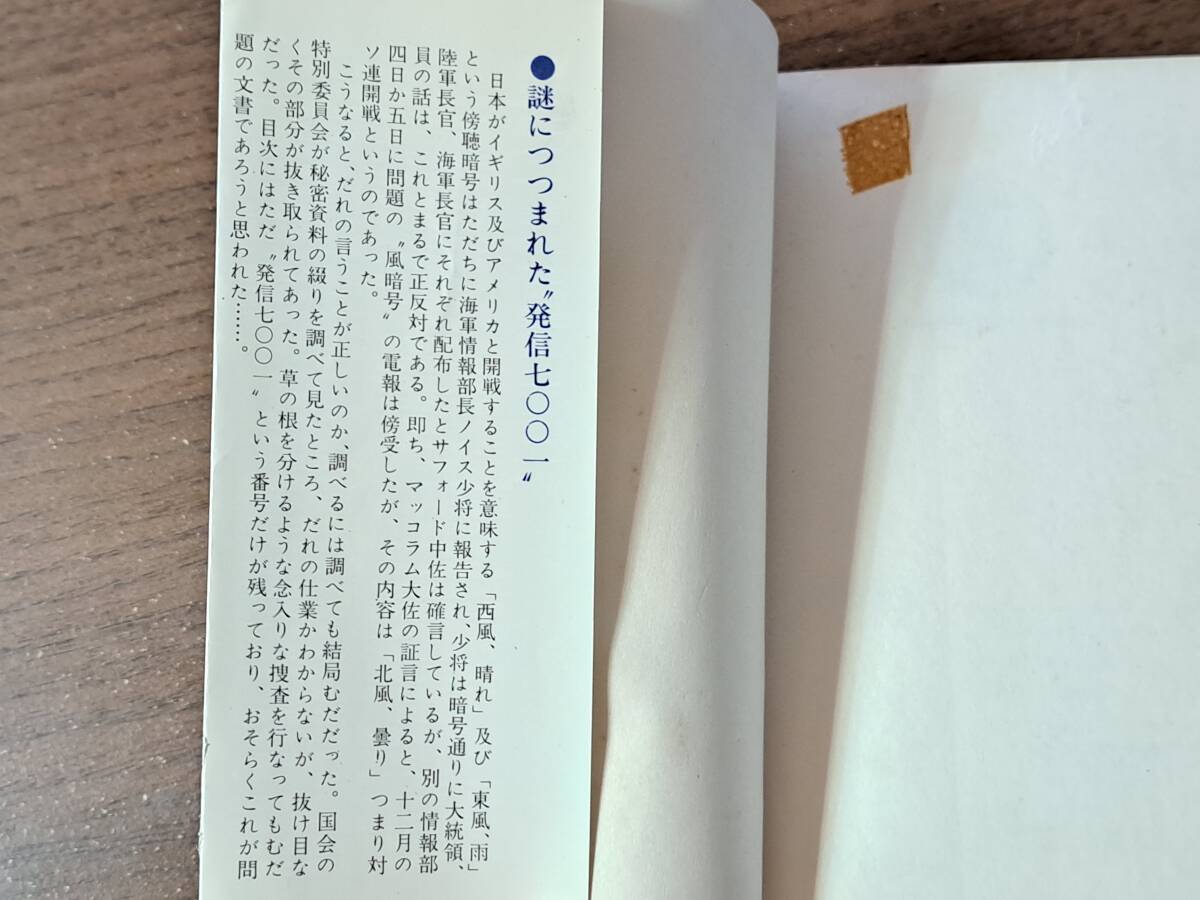 ●謎につつまれた〝発信七〇〇一〟
日本がイギリス及びアメリカと開戦することを意味する「西風、晴れ」及び「東風、雨」
という傍聴暗号はただちに海軍情報部長ノイス少将に報告され、少将は暗号通りに大統領、
陸軍長官、海軍長官にそれぞれ配布したとサフォード中佐は確言しているが、別の情報部
員の話は、これとまるで正反対である。即ち、マッコラム大佐の証言によると、十二月の
四日か五日に問題の〝風暗号〟の電報は傍受したが、その内容は「北風、曇り」つまり対
ソ連開戦というのであった。
こうなると、だれの言うことが正しいのか、調べるには調べても結局むだだった。国会の
特別委員会が秘密資料の綴りを調べて見たところ、だれの仕業かわからないが、抜け目な
くその部分が抜き取られてあった。草の根を分けるような念入りな捜査を行なってもむだ
だった。目次にはただ〝発信七〇〇一〟という番号だけが残っており、おそらくこれが問
題の文書であろうと思われた……。